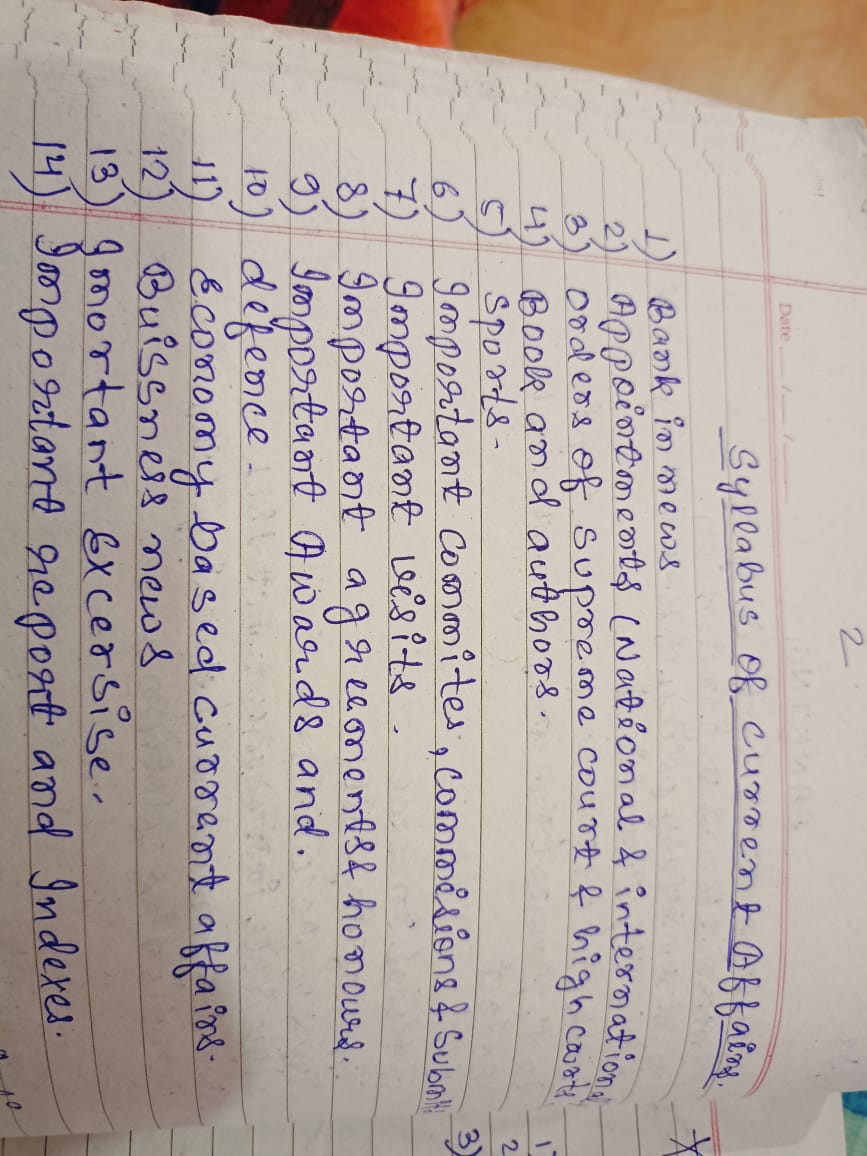 2
Date __/__/__
Syllabus of current Affairs.
1) Bank in news
2) Appointments (National & international
3) orders of supreme court & high courts
4) Book and authors.
5) Sports.
6) Important commites, commisions & Submit
7) Important visits.
8) Important agreements & honours.
9) Important Awards and.
10) defence.
11) Economy based current affairs.
12) Buissness news
13) Imortant Excersise.
14) Important report and Indexes.
1)
2
3)